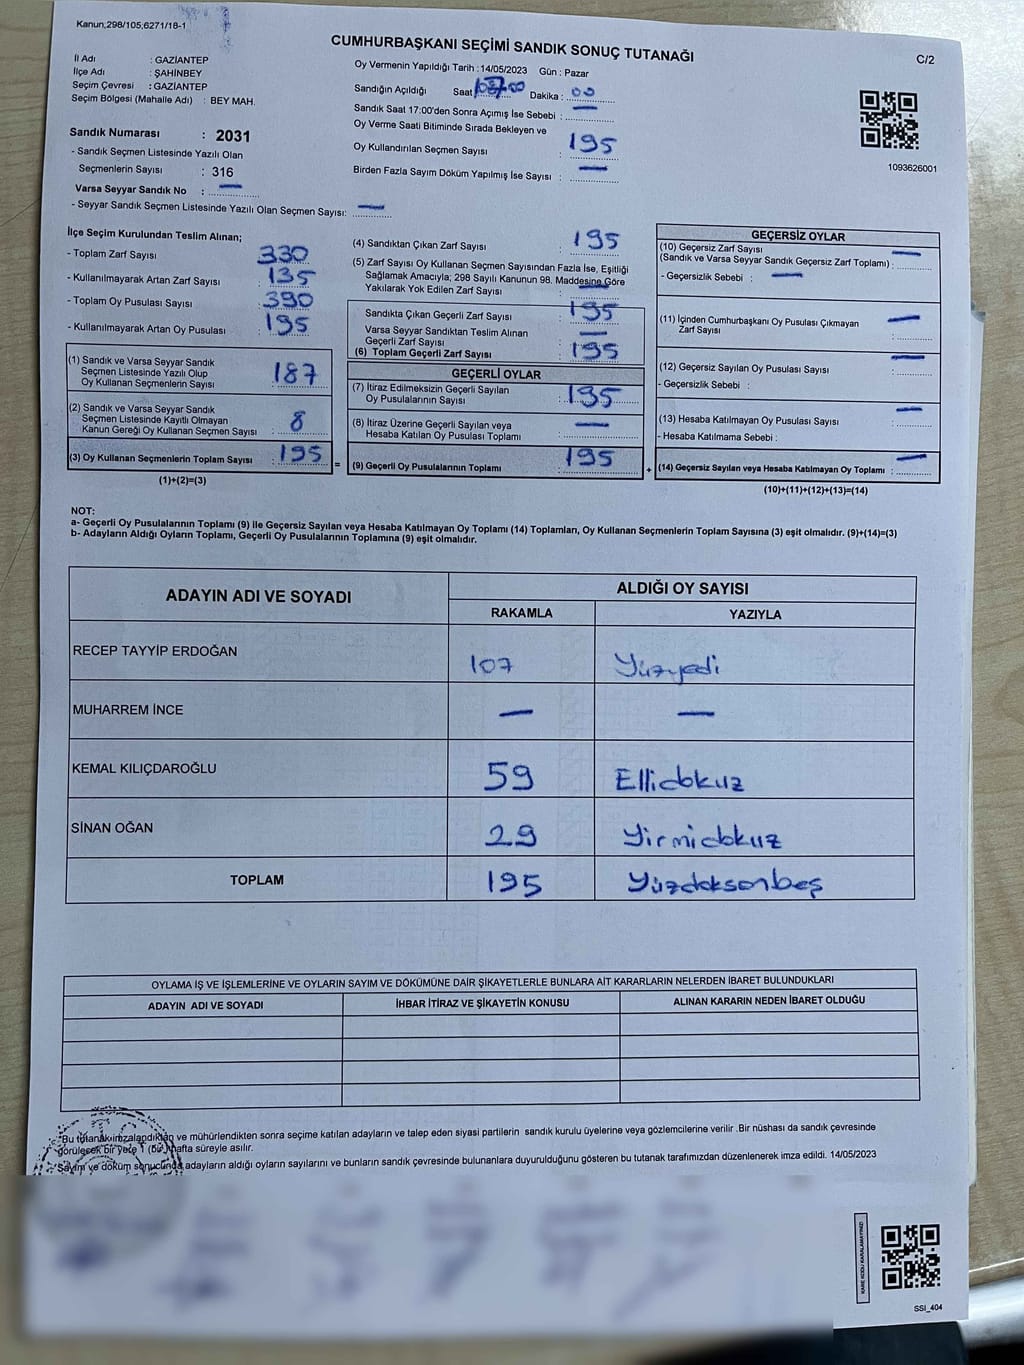 Kanun;298/105;6271/18-1
CUMHURBAŞKANI SEÇİMİ SANDIK SONUÇ TUTANAĞI
C/2
İl Adı : GAZİANTEP
İlçe Adı : ŞAHİNBEY
Seçim Çevresi : GAZİANTEP
Seçim Bölgesi (Mahalle Adı) : BEY MAH.
Oy Vermenin Yapıldığı Tarih :14/05/2023 Gün : Pazar
Sandığın Açıldığı Saat Dakika : 00
Sandık Saat 17:00'den Sonra Açımış İse Sebebi : —
Oy Verme Saati Bitiminde Sırada Bekleyen ve
Oy Kullandırılan Seçmen Sayısı : 195
Birden Fazla Sayım Döküm Yapılmış İse Sayısı : —
1093626001
Sandık Numarası : 2031
- Sandık Seçmen Listesinde Yazılı Olan
Seçmenlerin Sayısı : 316
Varsa Seyyar Sandık No : —
- Seyyar Sandık Seçmen Listesinde Yazılı Olan Seçmen Sayısı: —
İlçe Seçim Kurulundan Teslim Alınan;
- Toplam Zarf Sayısı : 330
- Kullanılmayarak Artan Zarf Sayısı : 135
- Toplam Oy Pusulası Sayısı : 390
- Kullanılmayarak Artan Oy Pusulası : 195
(1) Sandık ve Varsa Seyyar Sandık
Seçmen Listesinde Yazılı Olup
Oy Kullanan Seçmenlerin Sayısı : 187
(2) Sandık ve Varsa Seyyar Sandık
Seçmen Listesinde Kayıtlı Olmayan
Kanun Gereği Oy Kullanan Seçmen Sayısı : 8
(3) Oy Kullanan Seçmenlerin Toplam Sayısı : 195
(1)+(2)=(3)
(4) Sandıktan Çıkan Zarf Sayısı : 195
(5) Zarf Sayısı Oy Kullanan Seçmen Sayısından Fazla İse, Eşitliği
Sağlamak Amacıyla; 298 Sayılı Kanunun 98. Maddesine Göre
Yakılarak Yok Edilen Zarf Sayısı : —
Sandıkta Çıkan Geçerli Zarf Sayısı : 195
Varsa Seyyar Sandıktan Teslim Alınan
Geçerli Zarf Sayısı : —
(6) Toplam Geçerli Zarf Sayısı : 195
GEÇERLİ OYLAR
(7) İtiraz Edilmeksizin Geçerli Sayılan
Oy Pusulalarının Sayısı : 195
(8) İtiraz Üzerine Geçerli Sayılan veya
Hesaba Katılan Oy Pusulası Toplamı : —
= (9) Geçerli Oy Pusulalarının Toplamı : 195
GEÇERSİZ OYLAR
(10) Geçersiz Zarf Sayısı
(Sandık ve Varsa Seyyar Sandık Geçersiz Zarf Toplamı) : —
- Geçersizlik Sebebi : —
(11) İçinden Cumhurbaşkanı Oy Pusulası Çıkmayan
Zarf Sayısı : —
(12) Geçersiz Sayılan Oy Pusulası Sayısı : —
- Geçersizlik Sebebi :
(13) Hesaba Katılmayan Oy Pusulası Sayısı : —
- Hesaba Katılmama Sebebi :
+ (14) Geçersiz Sayılan veya Hesaba Katılmayan Oy Toplamı : —
(10)+(11)+(12)+(13)=(14)
NOT:
a- Geçerli Oy Pusulalarının Toplamı (9) ile Geçersiz Sayılan veya Hesaba Katılmayan Oy Toplamı (14) Toplamları, Oy Kullanan Seçmenlerin Toplam Sayısına (3) eşit olmalıdır. (9)+(14)=(3)
b- Adayların Aldığı Oyların Toplamı, Geçerli Oy Pusulalarının Toplamına (9) eşit olmalıdır.
ADAYIN ADI VE SOYADI
ALDIĞI OY SAYISI
RAKAMLA YAZIYLA
RECEP TAYYİP ERDOĞAN 107 Yüzyedi
MUHARREM İNCE — —
KEMAL KILIÇDAROĞLU 59 Ellidokuz
SİNAN OĞAN 29 Yirmidokuz
TOPLAM 195 Yüzdoksanbeş
OYLAMA İŞ VE İŞLEMLERİNE VE OYLARIN SAYIM VE DÖKÜMÜNE DAİR ŞİKAYETLERLE BUNLARA AİT KARARLARIN NELERDEN İBARET BULUNDUKLARI
ADAYIN ADI VE SOYADI İHBAR İTİRAZ VE ŞİKAYETİN KONUSU ALINAN KARARIN NEDEN İBARET OLDUĞU
*Bu tutanak imzalandıktan ve mühürlendikten sonra seçime katılan adayların ve talep eden siyasi partilerin sandık kurulu üyelerine veya gözlemcilerine verilir .Bir nüshası da sandık çevresinde
görülecek bir yere 1 (bir) hafta süreyle asılır.
*Sayım ve döküm sonucunda adayların aldığı oyların sayılarını ve bunların sandık çevresinde bulunanlara duyurulduğunu gösteren bu tutanak tarafımızdan düzenlenerek imza edildi. 14/05/2023
KARE KODU KARALAMAYINIZ!
SSI_404